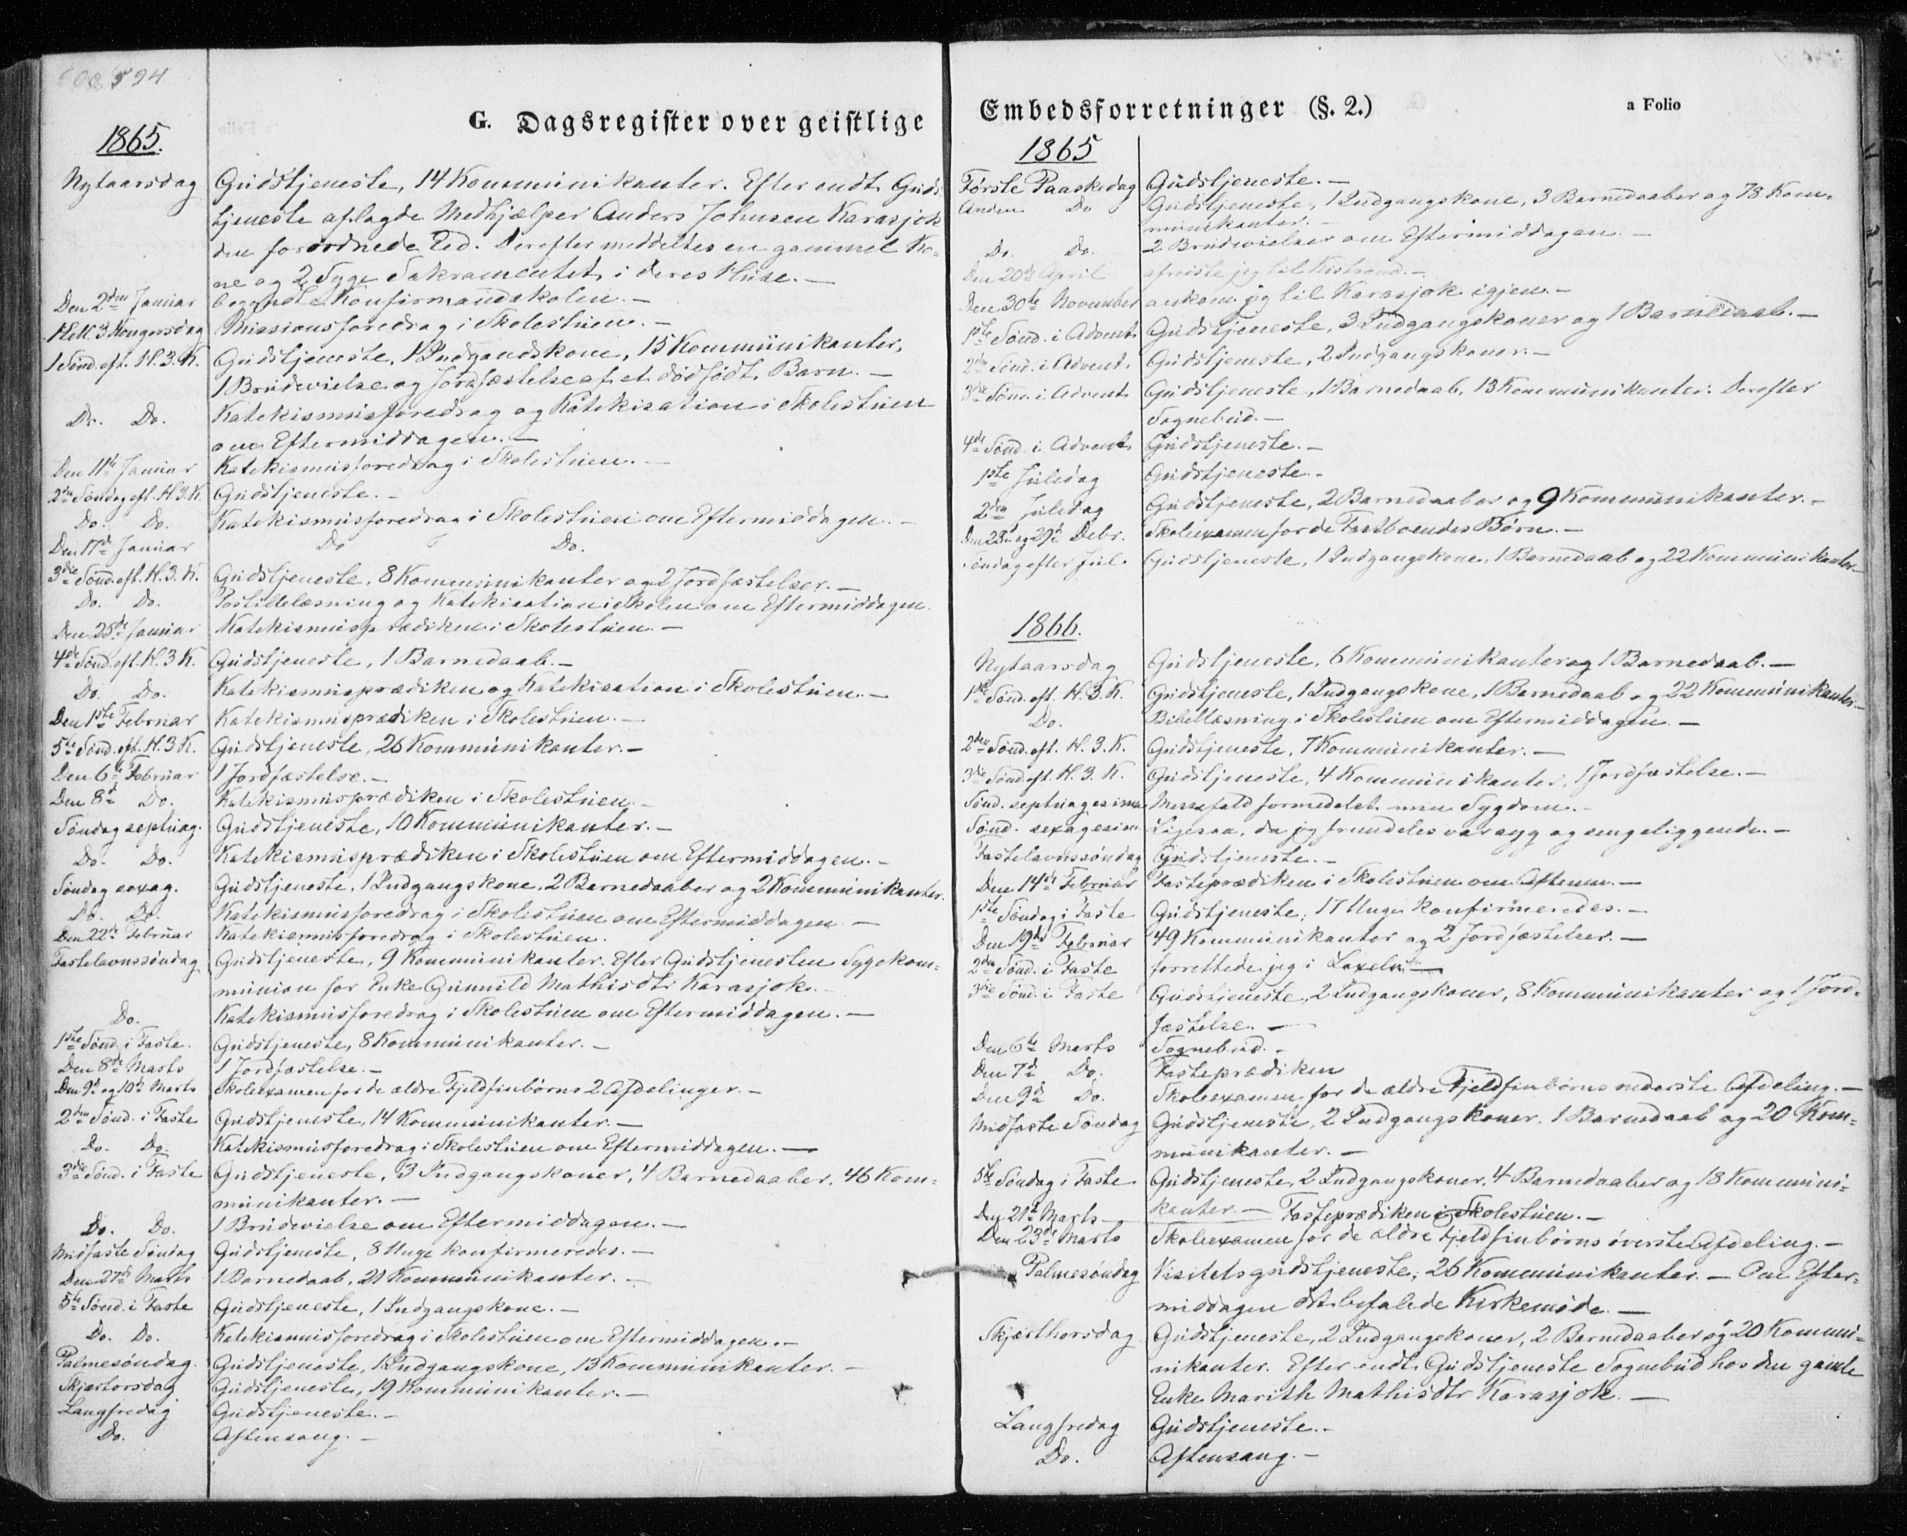 594
G. Dagsregister over geistlige
1865.
Nytaarsdag Gudstjeneste, 14 Kommunikanter. Efter endt Guds-
tjeneste aflagde Medhjælper Anders Johnsen Karasjok
den forordnede Ed. Derefter meddeltes en gammel Ko-
ne og 2 Syge Sakramentet i deres Huse. —
Den 2den Januar begyndte Konfirmandskolen. —
Hell. 3 Kongersdag Missionsforedrag i Skolestuen. —
1 Sønd. eft. H. 3. K. Gudstjeneste, 1 Indgangskone, 15 Kommunikanter,
1 Brudevielse og Jordfæstelse af et dødfødt Barn. —
Do. Do. Katekismusforedrag og Katekisation i Skolestuen
om Eftermiddagen. —
Den 11te Januar Katekismusforedrag i Skolestuen. —
2den Søndag eft. H. 3. K. Gudstjeneste. —
Do. Do. Katekismusforedrag i Skolestuen om Eftermiddagen. —
Den 17d Januar Do Do.
3die Sønd. eft. H. 3. K. Gudstjeneste, 8 Kommunikanter og 2 Jordfæstelser. —
Do. Do. Postillelæsning og Katekisation i Skolen om Eftermiddagen.
Den 25de Januar Katekismusprædiken i Skolestuen. —
4de Sønd. eft. H. 3 K. Gudstjeneste, 1 Barnedaab. —
Do. Do. Katekismusprædiken og Katekisation i Skolestuen. —
Den 1ste Februar Katekismusprædiken i Skolestuen. —
5te Sønd. eft. H. 3 K. Gudstjeneste, 26 Kommunikanter. —
Den 6te Februar 1 Jordfæstelse. —
Den 8d Do. Katekismusprædiken i Skolestuen. —
Søndag septuag. Gudstjeneste, 10 Kommunikanter. —
Do. Do. Katekismusprædiken i Skolestuen om Eftermiddagen. —
Søndag sexag. Gudstjeneste, 1 Indgangskone, 2 Barnedaaber og 2 Kommunikanter.
Do. Do. Katekismusforedrag i Skolestuen om Eftermiddagen. —
Den 22de Februar Katekismusforedrag i Skolestuen.
Fastelavnssøndag Gudstjeneste, 9 Kommunikanter. Efter Gudstjenesten Sygekom-
munion for Enke Gunnild Mathisdtr Karasjok. —
Do. Katekismusforedrag i Skolestuen om Eftermiddagen. —
1ste Sønd. i Faste. Gudstjeneste, 8 Kommunikanter. —
Den 8de Marts 1 Jordfæstelse. —
Den 9d og 10de Marts Skoleexamen for de ældre Fjeldfinbørns 2 Afdelinger. —
2den Sønd. i Faste Gudstjeneste, 14 Kommunikanter. —
Do. Do. Katekismusforedrag i Skolestuen om Eftermiddagen. —
3die Sønd. i Faste Gudstjeneste, 3 Indgangskoner, 4 Barnedaaber, 46 Kom-
munikanter. —
Do. Do. 1 Brudevielse om Eftermiddagen. —
Midfaste Søndag Gudstjeneste, 8 Unge konfirmeredes. —
Den 27de Marts 1 Barnedaab, 21 Kommunikanter. —
5te Sønd. i Faste Gudstjeneste, 1 Indgangskone. —
Do. Do. Katekismusforedrag i Skolestuen om Eftermiddagen. —
Palmesøndag. Gudstjeneste, 1 Indgangskone, 13 Kommunikanter. —
Skjærtorsdag Gudstjeneste, 19 Kommunikanter. —
Langfredag Gudstjeneste. —
Do. Aftensang. —
Embedsforretninger (§. 2.) a Folio
1865
Første Paaskedag Gudstjeneste. —
Anden Do Gudstjeneste, 1 Indgangskone, 3 Barnedaaber og 78 Kom-
munikanter. —
Do. Do. 2 Brudevielser om Eftermiddagen. —
Den 20de April afreiste jeg til Kistrand. —
Den 30te November ankom jeg til Karasjok igjen. —
1ste Sønd. i Advent Gudstjeneste, 3 Indgangskoner og 1 Barnedaab. —
2den Sønd. i Advent. Gudstjeneste, 2 Indgangskoner. —
3die Sønd. i Advent Gudstjeneste, 1 Barnedaab, 13 Kommunikanter. Derefter
Sognebud. —
4de Sønd. i Advent Gudstjeneste. —
1ste Juledag Gudstjeneste. —
2den Juledag Gudstjeneste, 2 Barnedaaber og 9 Kommunikanter. —
Den 28d og 29d Debr. Skoleexamen for de Fastboendes Børn. —
Søndag efter Jul. Gudstjeneste, 1 Indgangskone, 1 Barnedaab og 22 Kommunikanter.
1866.
Nytaarsdag Gudstjeneste, 6 Kommunikanter og 1 Barnedaab. —
1ste Sønd. eft. H. 3. K. Gudstjeneste, 1 Indgangskone, 1 Barnedaab og 22 Kommunikanter. —
Do. Bibellæsning i Skolestuen om Eftermiddagen. —
2den Sønd. eft. H. 3. K. Gudstjeneste, 7 Kommunikanter. —
3die Sønd. eft. H. 3. K. Gudstjeneste, 4 Kommunikanter, 1 Jordfæstelse. —
Sønd. septuagesima Messefald formedelst min Sygdom. —
Sønd. sexagesim Ligesaa, da jeg fremdeles var syg og sengeliggende. —
Fastelavnssøndag Gudstjeneste. —
Den 14de Februar Fasteprædiken i Skolestuen om Aftenen. —
1ste Søndag i Faste Gudstjeneste, 17 Unge konfirmeredes. —
Den 19de Februar 49 Kommunikanter og 2 Jordfæstelser. —
2den Sønd. i Faste forrettede jeg i Laxelv. —
3die Sønd. i Faste Gudstjeneste, 2 Indgangskoner, 8 Kommunikanter og 1 Jord-
fæstelse. —
Den 6te Marts Sognebud. —
Den 7d Do. Fasteprædiken
Den 9d Do. Skoleexamen for de ældre Fjeldfinbørns nederste Afdeling. —
Midfaste Søndag Gudstjeneste, 2 Indgangskoner, 1 Barnedaab og 20 Kom-
munikanter. —
5te Søndag i Faste Gudstjeneste, 2 Indgangskoner, 4 Barnedaaber og 18 Kommuni-
kanter. —
Den 21de Marts Fasteprædiken i Skolestuen. —
Den 23de Marts Skoleexamen for de ældre Fjeldfinbørns øverste Afdeling. —
Palmesøndag Visitatsgudstjeneste; 26 Kommunikanter. — Om Efter-
middagen det befalede Kirkemøde. —
Skjærthorsdag Gudstjeneste, 2 Indgangskoner, 2 Barnedaaber og 20 Kommu-
nikanter. Efter endt Gudstjeneste Sognebud hos den gamle
Enke Marith Mathisdtr Karasjok. —
Langfredag Gudstjeneste. —
Do. Aftensang. —